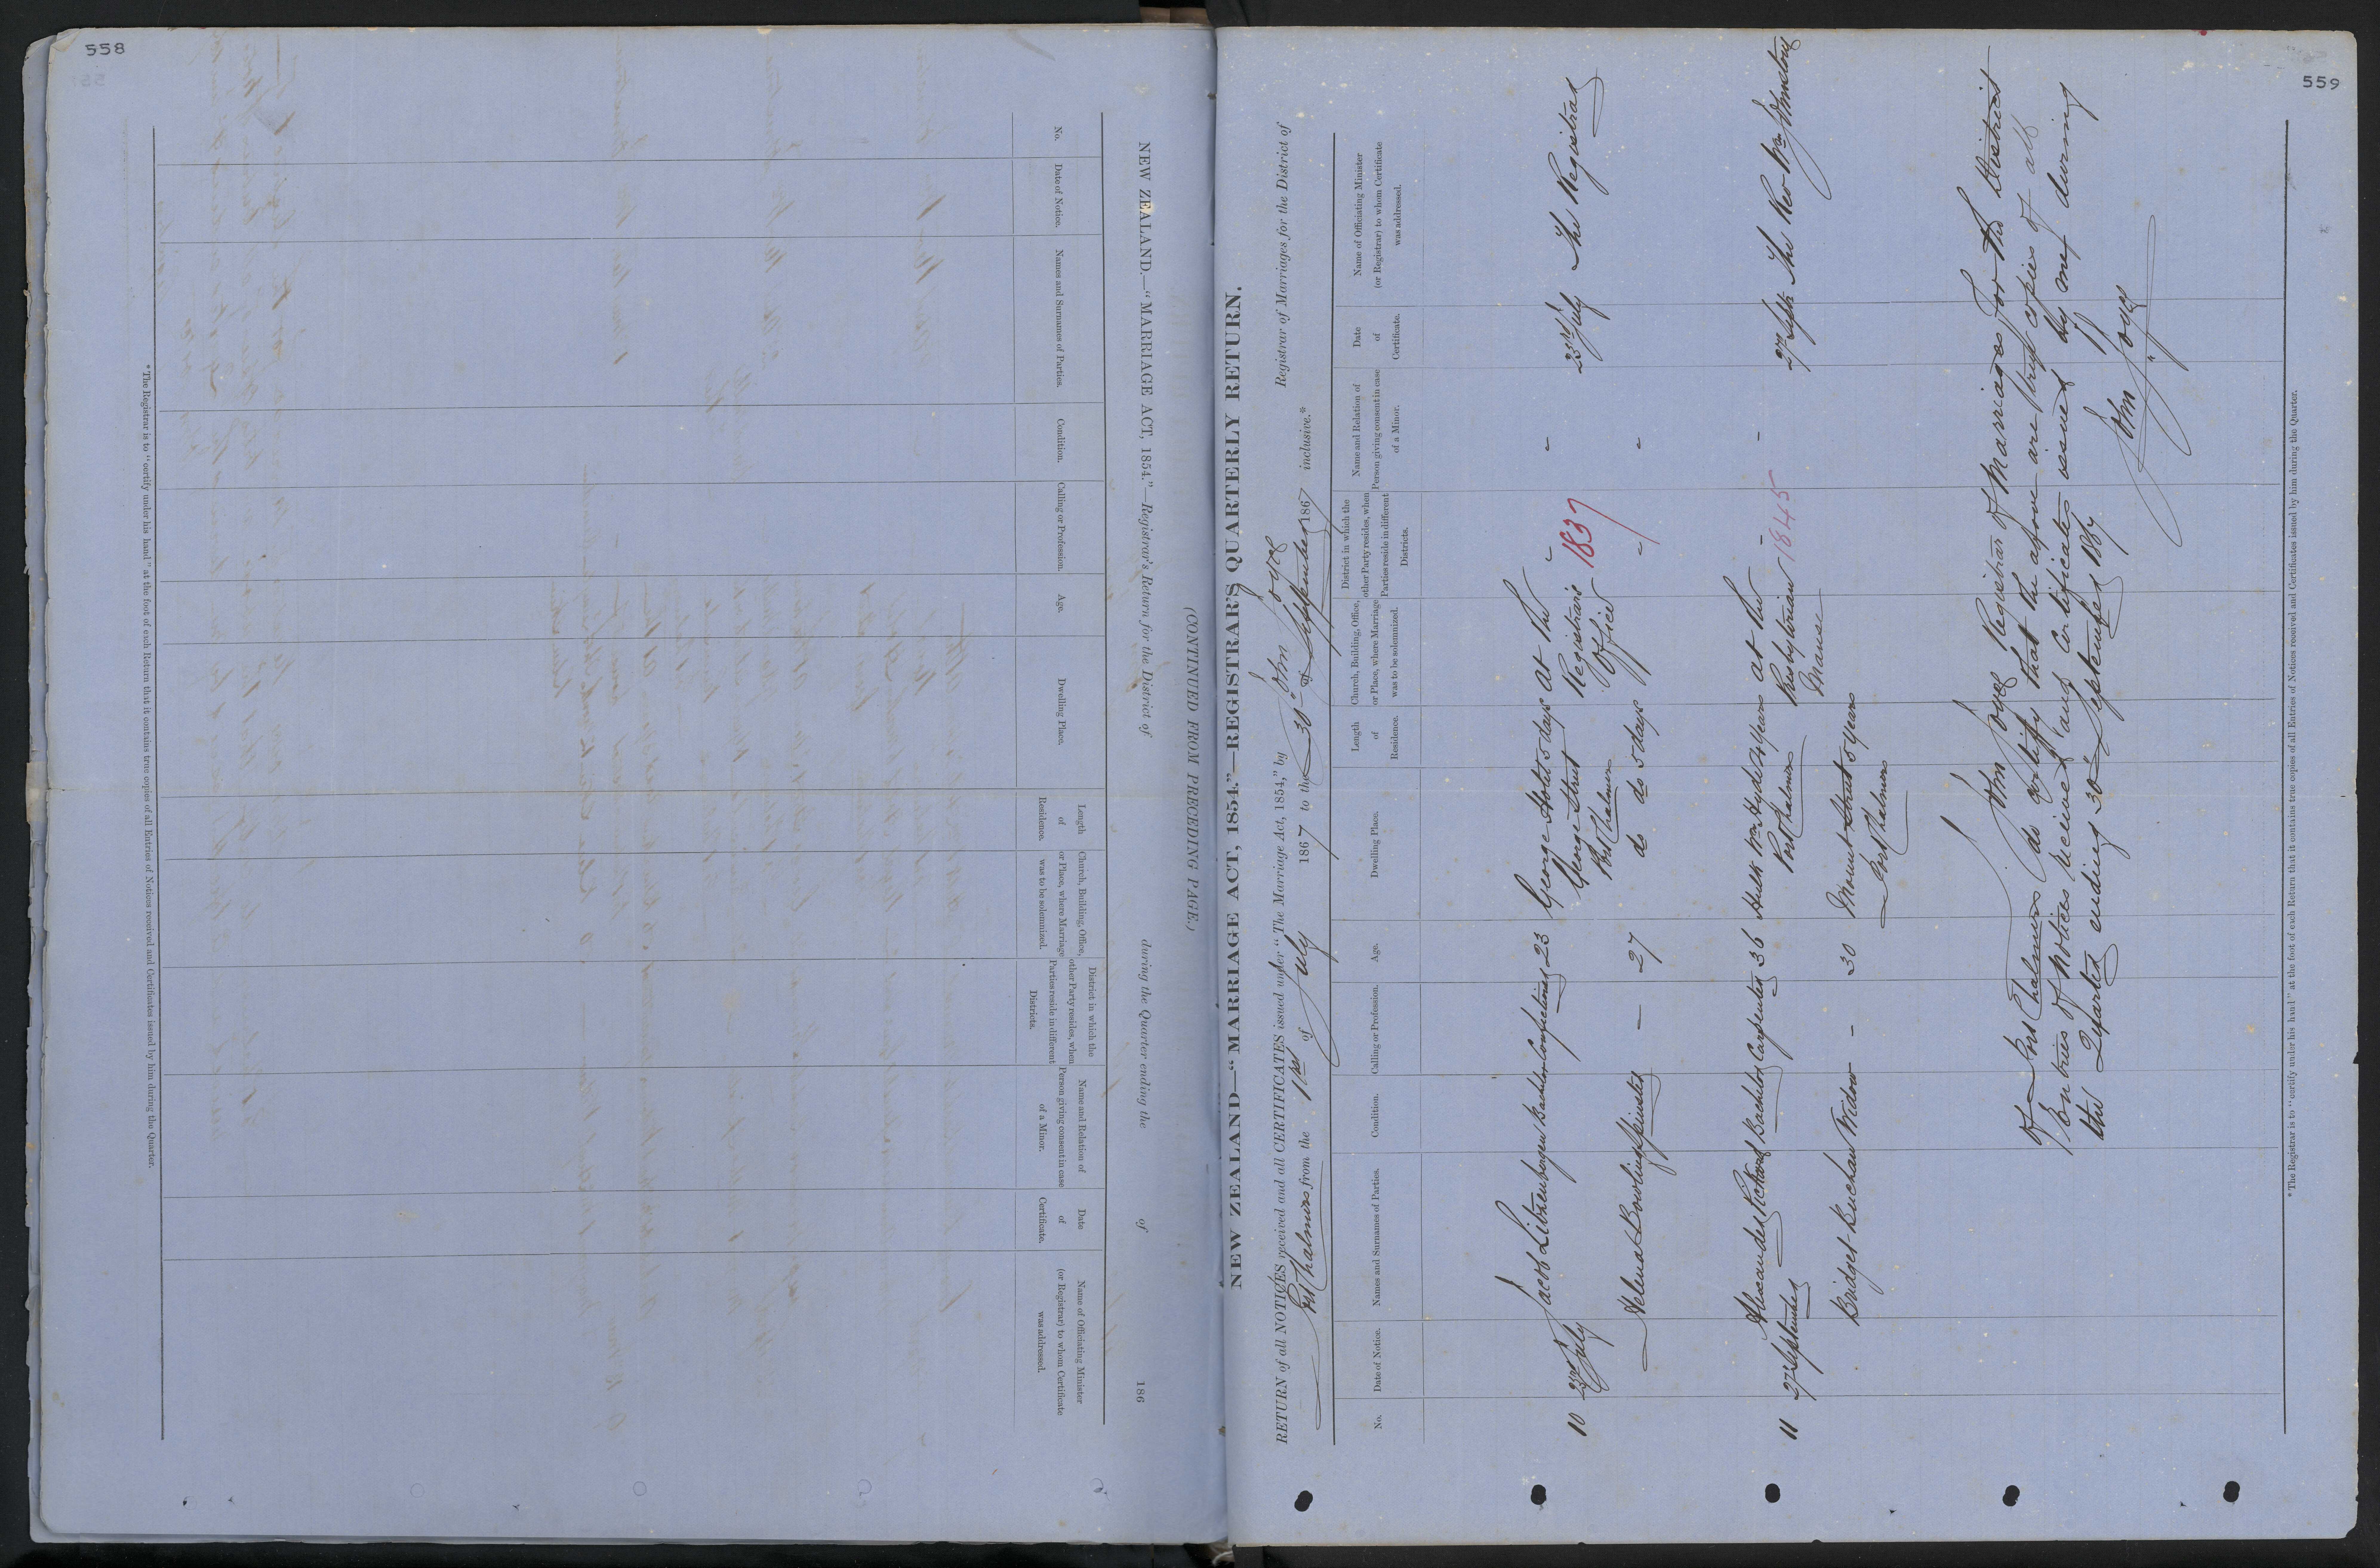 558
NEW ZEALAND.—"MARRIAGE ACT, 1854."—Registrar's Return for the District of during the Quarter ending the of 186
(CONTINUED FROM PRECEDING PAGE.)
No.
Date of Notice.
Names and Surnames of Parties.
Condition.
Calling or Profession.
Age.
Dwelling Place.
Length
of
Residence.
Church, Building, Office,
or Place, where Marriage
was to be solemnized.
District in which the
other Party resides, when
Parties reside in different
Districts.
Name and Relation of
Person giving consent in case
of a Minor.
Date
of
Certificate.
Name of Officiating Minister
(or Registrar) to whom Certificate
was addressed.
* The Registrar is to "certify under his hand" at the foot of each Return that it contains true copies of all Entries of Notices received and Certificates issued by him during the Quarter.
559
NEW ZEALAND—"MARRIAGE ACT, 1854."—REGISTRAR'S QUARTERLY RETURN.
RETURN of all NOTICES received and all CERTIFICATES issued under "The Marriage Act, 1854," by John Joyce Registrar of Marriages for the District of
Port Chalmers from the 1st of July 1867 to the 30th of September 1867 inclusive.*
No.
Date of Notice.
Names and Surnames of Parties.
Condition.
Calling or Profession.
Age.
Dwelling Place.
Length
of
Residence.
Church, Building, Office,
or Place, where Marriage
was to be solemnized.
District in which the
other Party resides, when
Parties reside in different
Districts.
Name and Relation of
Person giving consent in case
of a Minor.
Date
of
Certificate.
Name of Officiating Minister
(or Registrar) to whom Certificate
was addressed.
10 23rd July Jacob Litzenbergen Bachelor Confectioner 23 George Hotel 5 days at the - - 23rd July The Registrar
George Street Registrar's 1837
Port Chalmers Office
Helena Bowling Spinster — 27 do do 5 days " - -
11 27 September Alexander Bachelor Carpenter 36 Hulk Wm Hyde 4 years at the - - 27 Septr The Rev Wm Johnstone
Port Chalmers Presbyterian 1845
Manse
Bridget Buchan Widow — 30 Mount Street 5 years
Port Chalmers
I John Joyce Registrar of Marriages for the District
of Port Chalmers do certify that the above are true copies of all
Entries of Notices received and Certificates issued by me during
the Quarter ending 30th September 1867
John Joyce
* The Registrar is to "certify under his hand" at the foot of each Return that it contains true copies of all Entries of Notices received and Certificates issued by him during the Quarter.